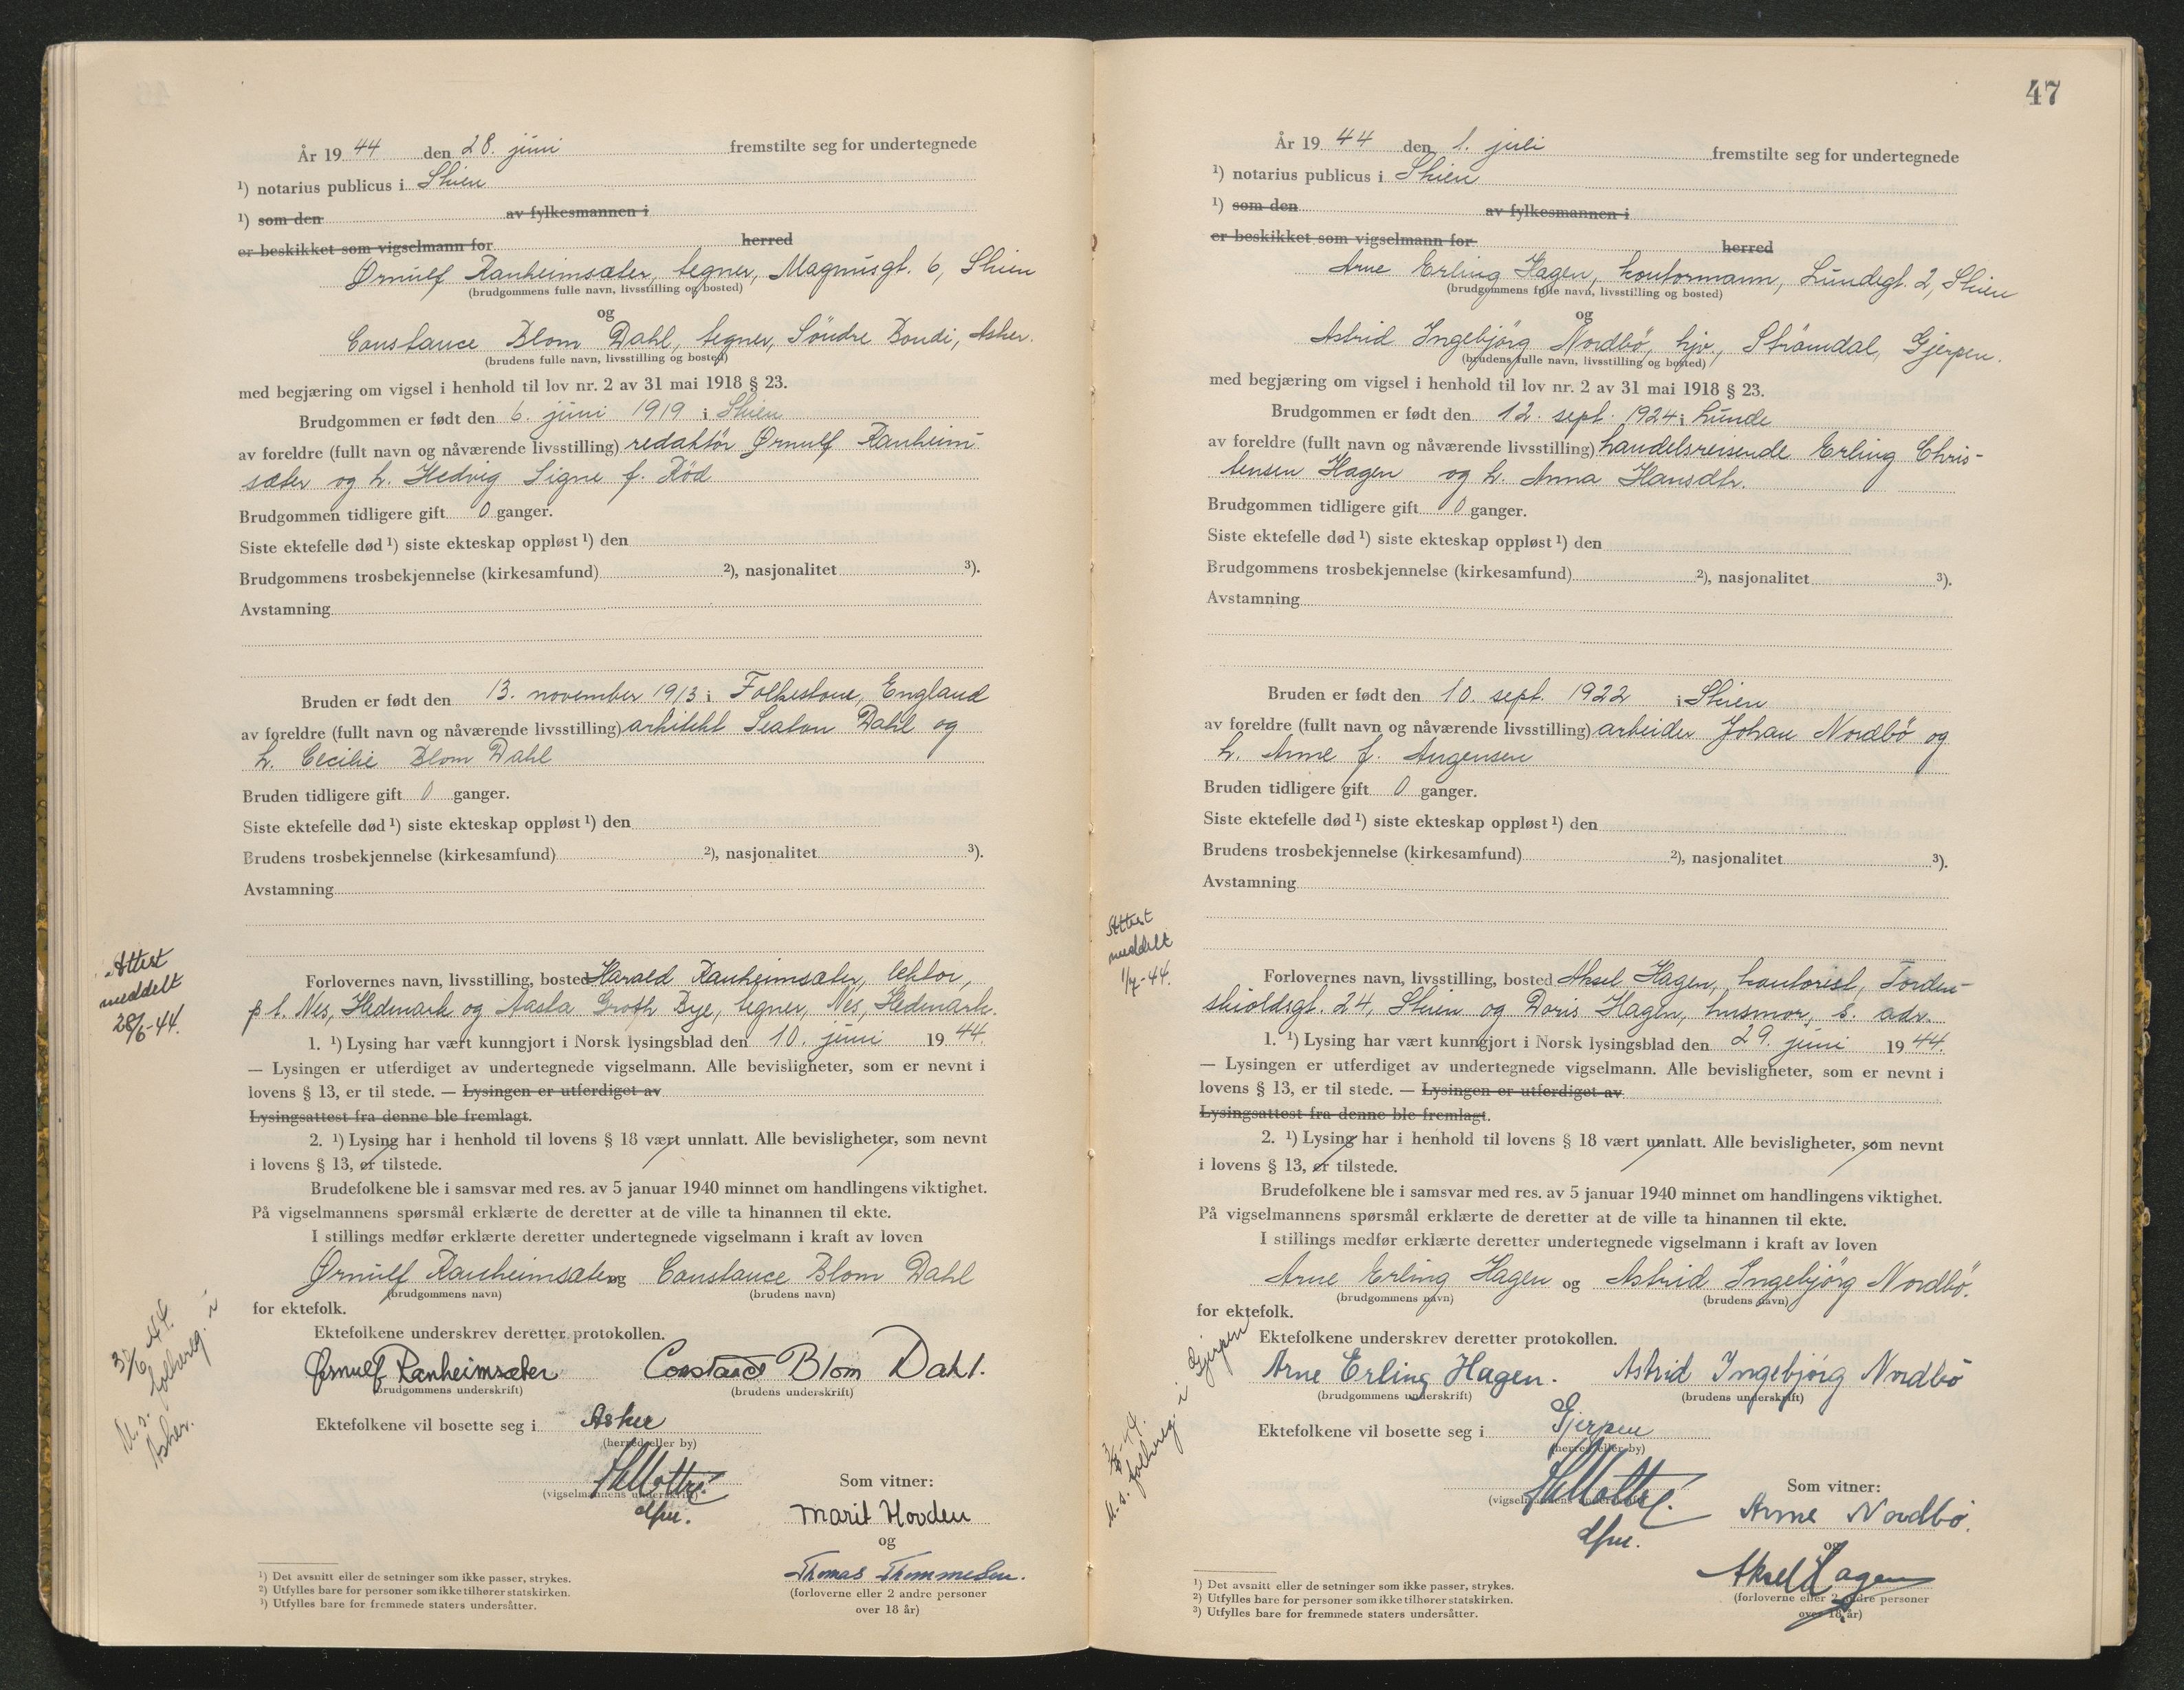 År 19 44 den 28. juni fremstilte seg for undertegnede
¹) notarius publicus i Skien
¹) som den av fylkesmannen i
er beskikket som vigselmann for herred
Ørnulf Ranheimsæter, tegner, Magnusgt. 6, Skien
(brudgommens fulle navn, livsstilling og bosted)
og
Constance Blom Dahl, tegner, Söndre Bondi, Asker.
(brudens fulle navn, livsstilling og bosted)
med begjæring om vigsel i henhold til lov nr. 2 av 31 mai 1918 § 23.
Brudgommen er født den 6. juni 1919 i Skien
av foreldre (fullt navn og nåværende livsstilling) redaktör Ørnulf Ranheim-
sæter og h. Hedvig Signe f. Röd
Brudgommen tidligere gift 0 ganger.
Siste ektefelle død ¹) siste ekteskap oppløst ¹) den
Brudgommens trosbekjennelse (kirkesamfund) ²), nasjonalitet ³).
Avstamning
Bruden er født den 13. november 1913 i Folkestone, England
av foreldre (fullt navn og nåværende livsstilling) arkitekt Seaton Dahl og
h. Cecilie Blom Dahl
Bruden tidligere gift 0 ganger.
Siste ektefelle død ¹) siste ekteskap oppløst ¹) den
Brudens trosbekjennelse (kirkesamfund) ²), nasjonalitet ³).
Avstamning
Attest
meddelt
28/6-44.
Forlovernes navn, livsstilling, bosted Harald Ranheimsæter, lektor,
p t. Nes, Hedmark og Aasta Groth Bye, tegner, Nes, Hedmark.
1. ¹) Lysing har vært kunngjort i Norsk lysingsblad den 10. juni 19 44.
— Lysingen er utferdiget av undertegnede vigselmann. Alle bevisligheter, som er nevnt i
lovens § 13, er til stede. — Lysingen er utferdiget av
Lysingsattest fra denne ble fremlagt.
2. ¹) Lysing har i henhold til lovens § 18 vært unnlatt. Alle bevisligheter, som nevnt
i lovens § 13, er tilstede.
Brudefolkene ble i samsvar med res. av 5 januar 1940 minnet om handlingens viktighet.
På vigselmannens spørsmål erklærte de deretter at de ville ta hinannen til ekte.
I stillings medfør erklærte deretter undertegnede vigselmann i kraft av loven
Ørnulf Ranheimsæter og Constance Blom Dahl
(brudgommens navn) (brudens navn)
for ektefolk.
Ektefolkene underskrev deretter protokollen.
Ørnulf Ranheimsæter Constance Blom Dahl.
(brudgommens underskrift) (brudens underskrift)
Ektefolkene vil bosette seg i Asker
(herred eller by)
44.
M. s. folkereg. i
Asker.
(vigselmannens underskrift)
Som vitner:
Marit Hovden
og
Thomas Thommesen.
(forloverne eller 2 andre personer
over 18 år)
¹) Det avsnitt eller de setninger som ikke passer, strykes.
²) Utfylles bare for personer som ikke tilhører statskirken.
³) Utfylles bare for fremmede staters undersåtter.
47
År 19 44 den 1. juli fremstilte seg for undertegnede
¹) notarius publicus i Skien
¹) som den av fylkesmannen i
er beskikket som vigselmann for herred
Arne Erling Hagen, kontormann, Lundegt. 2, Skien
(brudgommens fulle navn, livsstilling og bosted)
og
Astrid Ingebjörg Nordbö, hjv., Strömdal, Gjerpen.
(brudens fulle navn, livsstilling og bosted)
med begjæring om vigsel i henhold til lov nr. 2 av 31 mai 1918 § 23.
Brudgommen er født den 12. sept. 1924 i Lunde
av foreldre (fullt navn og nåværende livsstilling) handelsreisende Erling Chris-
tensen Hagen og h. Anna Hansdtr.
Brudgommen tidligere gift 0 ganger.
Siste ektefelle død ¹) siste ekteskap oppløst ¹) den
Brudgommens trosbekjennelse (kirkesamfund) ²), nasjonalitet ³).
Avstamning
Bruden er født den 10. sept. 1922 i Skien
av foreldre (fullt navn og nåværende livsstilling) arbeider Johan Nordbö og
h. Anne f. Angensen
Bruden tidligere gift 0 ganger.
Siste ektefelle død ¹) siste ekteskap oppløst ¹) den
Brudens trosbekjennelse (kirkesamfund) ²), nasjonalitet ³).
Avstamning
Attest
meddelt
1/7-44.
Forlovernes navn, livsstilling, bosted Aksel Hagen, kontorist, Torden-
skioldsgt. 24, Skien og Doris Hagen, husmor, s. adr.
1. ¹) Lysing har vært kunngjort i Norsk lysingsblad den 29. juni 19 44.
— Lysingen er utferdiget av undertegnede vigselmann. Alle bevisligheter, som er nevnt i
lovens § 13, er til stede. — Lysingen er utferdiget av
Lysingsattest fra denne ble fremlagt.
2. ¹) Lysing har i henhold til lovens § 18 vært unnlatt. Alle bevisligheter, som nevnt
i lovens § 13, er tilstede.
Brudefolkene ble i samsvar med res. av 5 januar 1940 minnet om handlingens viktighet.
På vigselmannens spørsmål erklærte de deretter at de ville ta hinannen til ekte.
I stillings medfør erklærte deretter undertegnede vigselmann i kraft av loven
Arne Erling Hagen og Astrid Ingebjörg Nordbö.
(brudgommens navn) (brudens navn)
for ektefolk.
Ektefolkene underskrev deretter protokollen.
Arne Erling Hagen. Astrid Ingebjørg Nordbö
(brudgommens underskrift) (brudens underskrift)
Ektefolkene vil bosette seg i Gjerpen
(herred eller by)
44.
M. s. folkereg. i Gjerpen
(vigselmannens underskrift)
Som vitner:
Arne Nordbö.
og
Aksel Hagen
(forloverne eller 2 andre personer
over 18 år)
¹) Det avsnitt eller de setninger som ikke passer, strykes.
²) Utfylles bare for personer som ikke tilhører statskirken.
³) Utfylles bare for fremmede staters undersåtter.